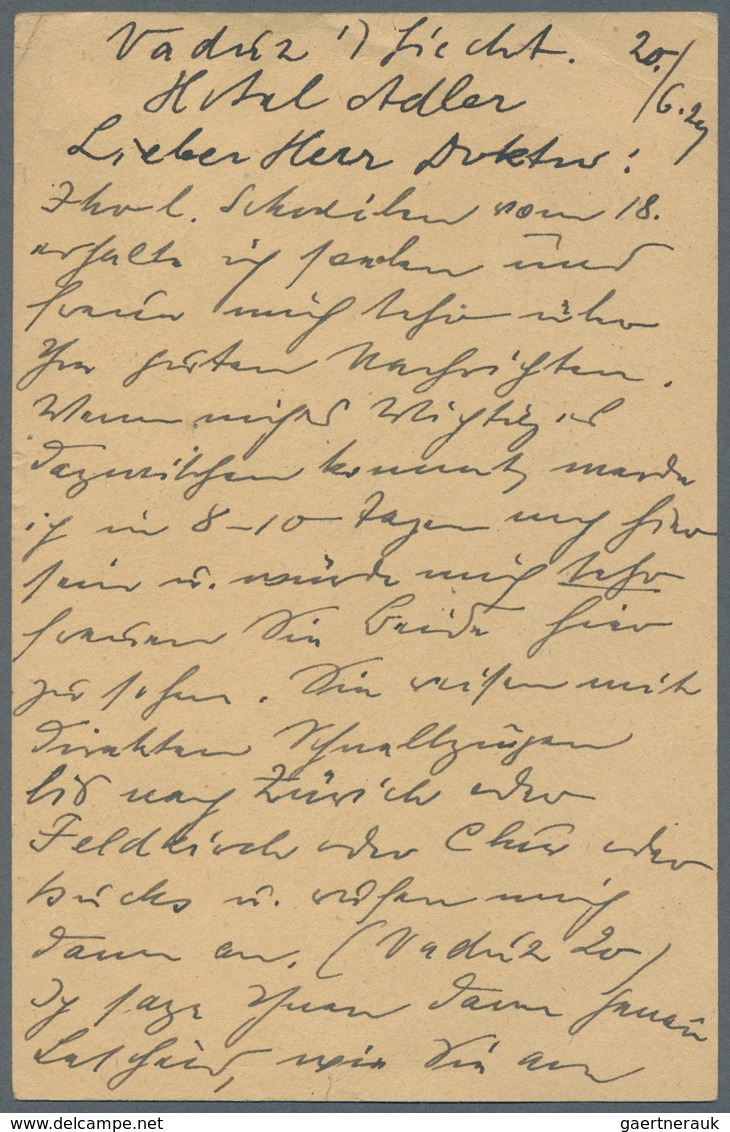 Vadúz i/ Liecht. 20./6.29
Hotel Adler
Lieber Herr Doktor!
Ihr l. Schreiben vom 18.
erhalte ich soeben und
freue mich sehr über
Ihre guten Nachrichten.
Wenn nichts Wichtiges
dazwischen kommt, werde
ich in 8–10 Tagen noch hier
sein u. würde mich sehr
freuen Sie beide hier
zu sehen. Sie reisen mit
direkten Schnellzügen
bis nach Zürich oder
Feldkirch oder Chur oder
Buchs u. rufen mich
dann an. (Vadúz 20)
Ich sage Ihnen dann genau
Bescheid, wie Sie am
gaertnerauk